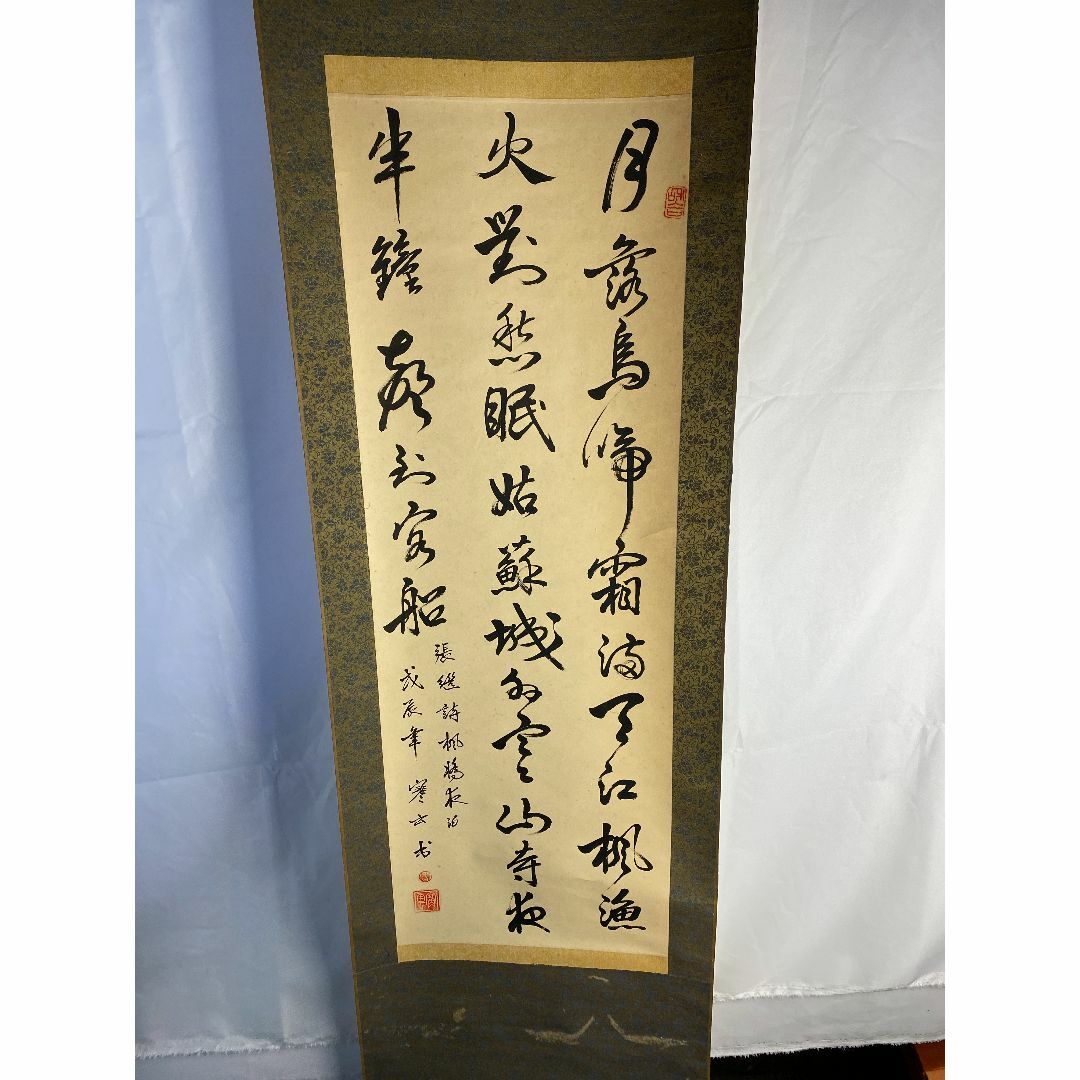 月落烏啼霜满天江楓漁
火對愁眠姑蘇城外寒山寺夜
半鐘聲到客船
張繼詩楓橋夜泊
戊辰年寒云书